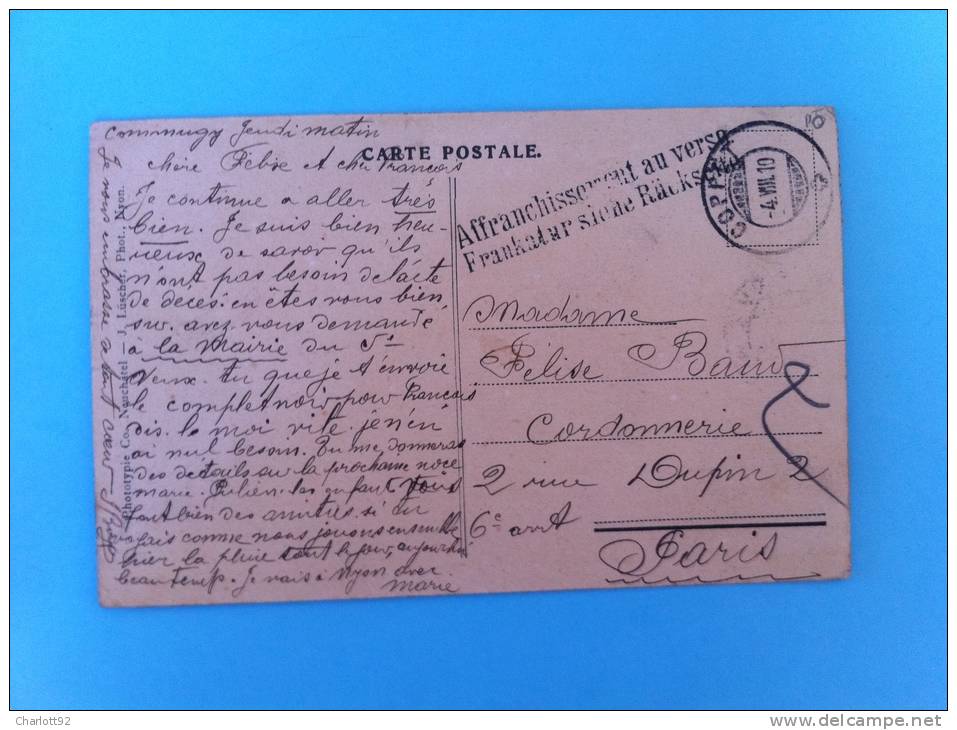 Commugy Jeudi matin
CARTE POSTALE.
chère Félise et cher François
Je continue a aller très
bien. Je suis bien heu-
reux de savoir qu'ils
n'ont pas besoin de l'acte
de décès. en êtes vous bien
sur. avez vous demandé
à la Mairie du 5e
Veux tu que je t'envoie
le complet noir pour François
dis. le moi vite je n'en
ai nul besoin. Tu me donneras
des détails sur la prochaine noce
marie. Julien
fait bien des amitiés. si tu
savais comme nous jouons ensemble
hier la pluie tout le jour, aujourd'hui
beau temps. Je vais à Nyon avec
marie
Je vous embrasse de tout cœur
Phototypie Co., Neuchatel — J. Lüscher, Phot., Nyon.
Affranchissement au verso
Frankatur siehe Rückseite
COPPET
-4.VIII.10
Madame
Félise Baud
Cordonnerie
2 rue Dupin 2
6e arrt
Paris
Charlott92
www.delcampe.net